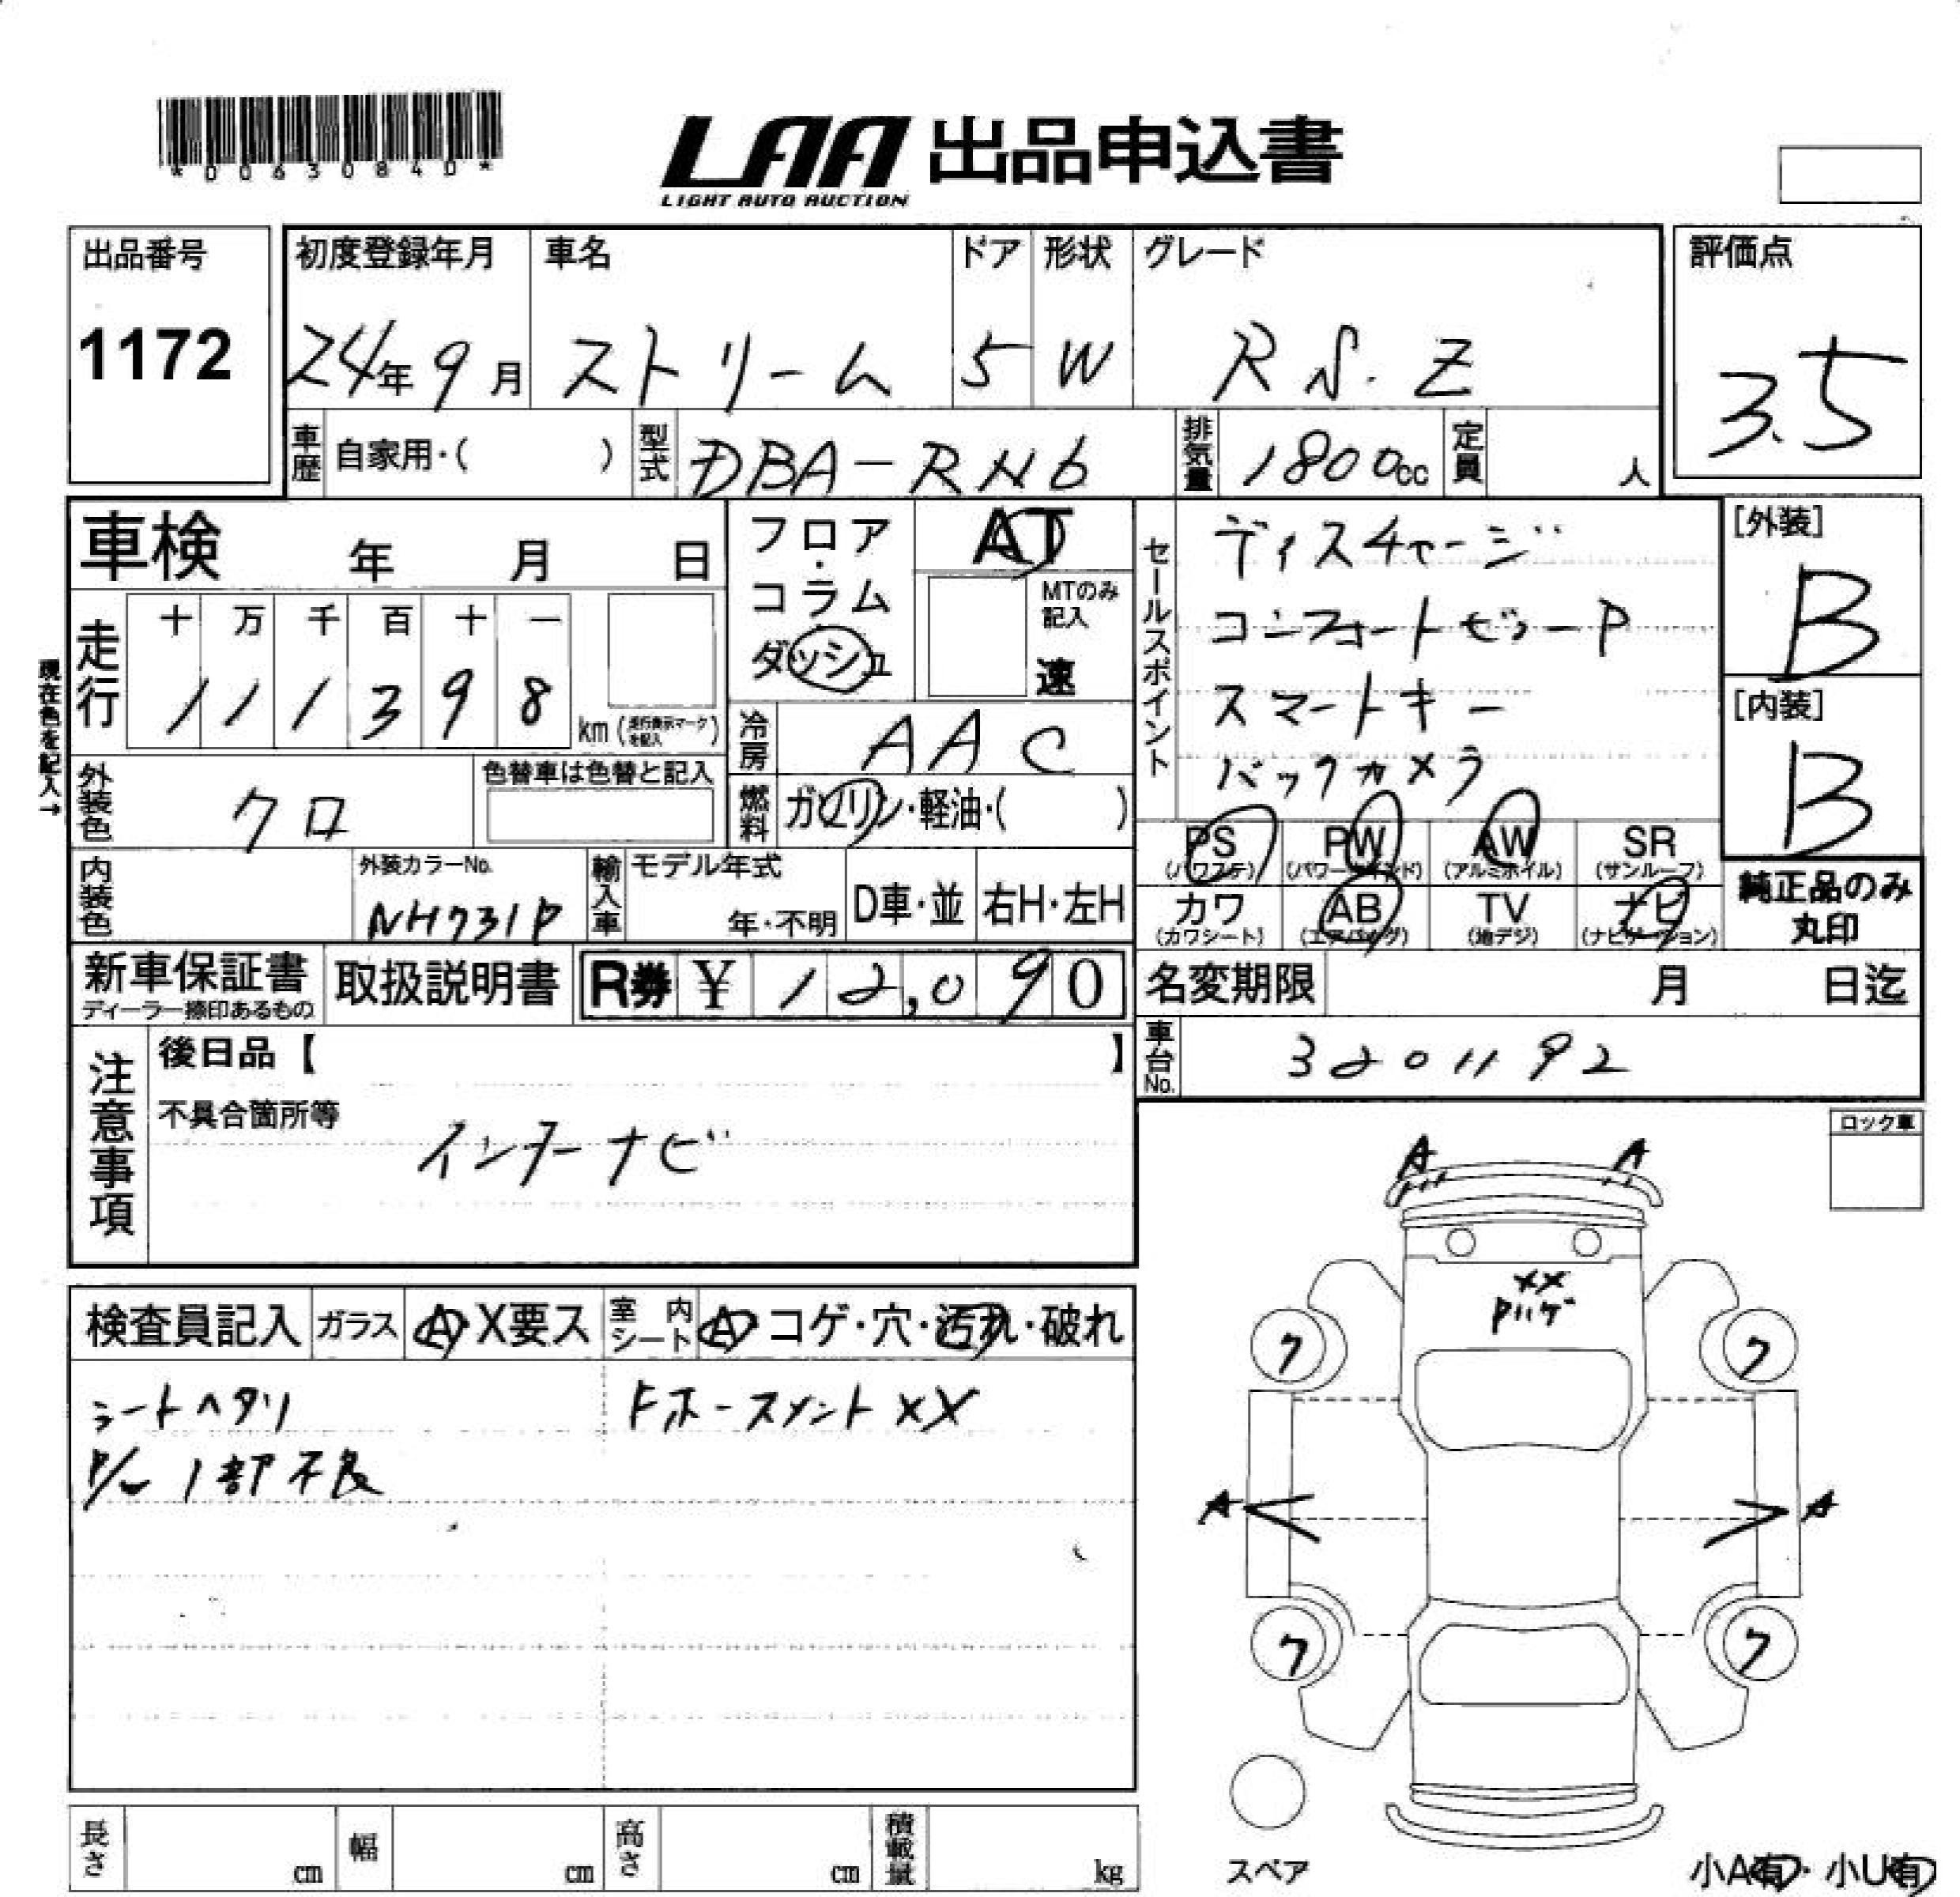 *00630840*
LAA 出品申込書
LIGHT AUTO AUCTION
出品番号
1172
初度登録年月
24年9月
車名
ストリーム
ドア
5
形状
W
グレード
RS.Z
評価点
3.5
車歴
自家用・( )
型式
DBA-RN6
排気量
1800cc
定員
人
車検 年 月 日
走行
十 万 千 百 十 一
1 1 1 3 9 8
km (走行表示マークを記入)
現在色を記入→
フロア・
コラム
ダッシュ
AT
MTのみ
記入
速
セールスポイント
ディスチャージ
コンフォートビューP
スマートキー
バックカメラ
[外装]
B
[内装]
B
冷房
AAC
燃料
ガソリン・軽油・( )
外装色
クロ
色替車は色替と記入
内装色
外装カラーNo.
NH731P
輸入車
モデル年式
年・不明
D車・並
右H・左H
PS
(パワステ)
PW
(パワーウインド)
AW
(アルミホイル)
SR
(サンルーフ)
カワ
(カワシート)
AB
(エアバッグ)
TV
(地デジ)
ナビ
(ナビゲーション)
純正品のみ
丸印
新車保証書
ディーラー捺印あるもの
取扱説明書
R券 ¥ 12,090
名変期限 月 日迄
車台No.
3201192
注意事項
後日品【 】
不具合箇所等
インターナビ
ロック車
検査員記入
ガラス
A・X要ス
室内
シート
A・コゲ・穴・汚れ・破れ
シートヘタリ
1部不良
ホースメントXX
A A
XX
Pハゲ
ク ク
A A
ク ク
スペア
小A有・小U有
長さ cm
幅 cm
高さ cm
積載量 kg